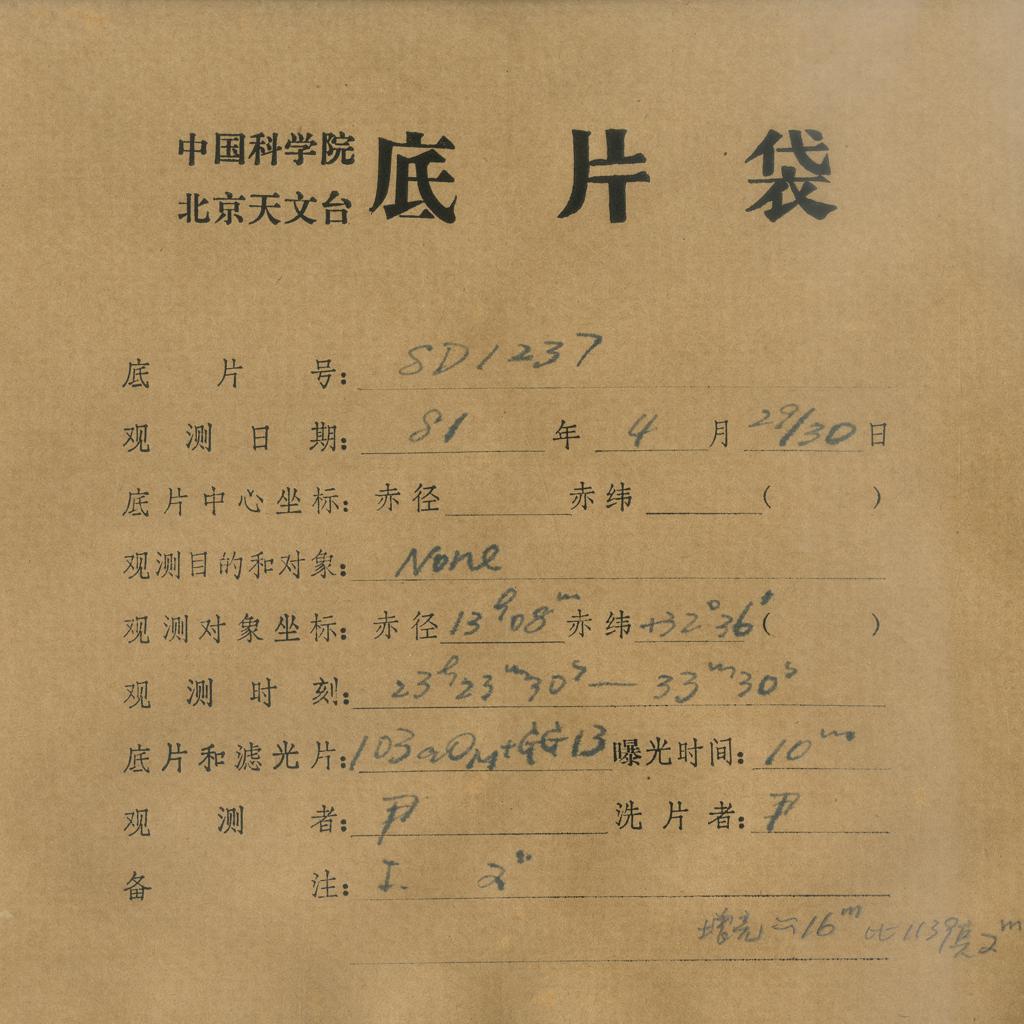 中国科学院
北京天文台
底片袋
底片号: SD1237
观测日期: 81 年 4 月 29/30 日
底片中心坐标: 赤径 赤纬 ( )
观测目的和对象: None
观测对象坐标: 赤径 13ʰ08ᵐ 赤纬 +32°36′ ( )
观测时刻: 23ʰ23ᵐ30ˢ — 33ᵐ30ˢ
底片和滤光片: 103aO + GG13 曝光时间: 10ᵐ
观测者: 尹 洗片者: 尹
备注: I. 2"
增亮≈16ᵐ 比1139 2ᵐ